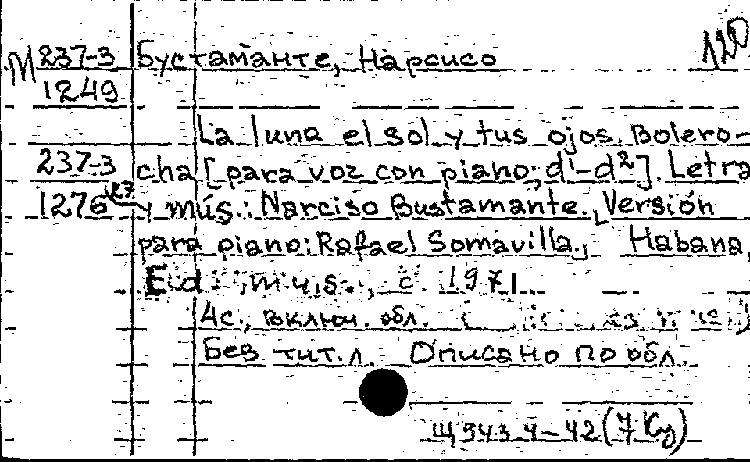 М 237-3 Бустаманте, Нарсисо 120
1249
La luna el sol y tus ojos. Bolero-
237-3 cha [para voz con piano; d¹-d²]. Letra
1276 y mús.: Narciso Bustamante. Versión
para piano: Rafael Somavilla. Habana,
Ed. mus., c. 1971.
4с., включ. обл.
Без тит. л. Описано по обл.